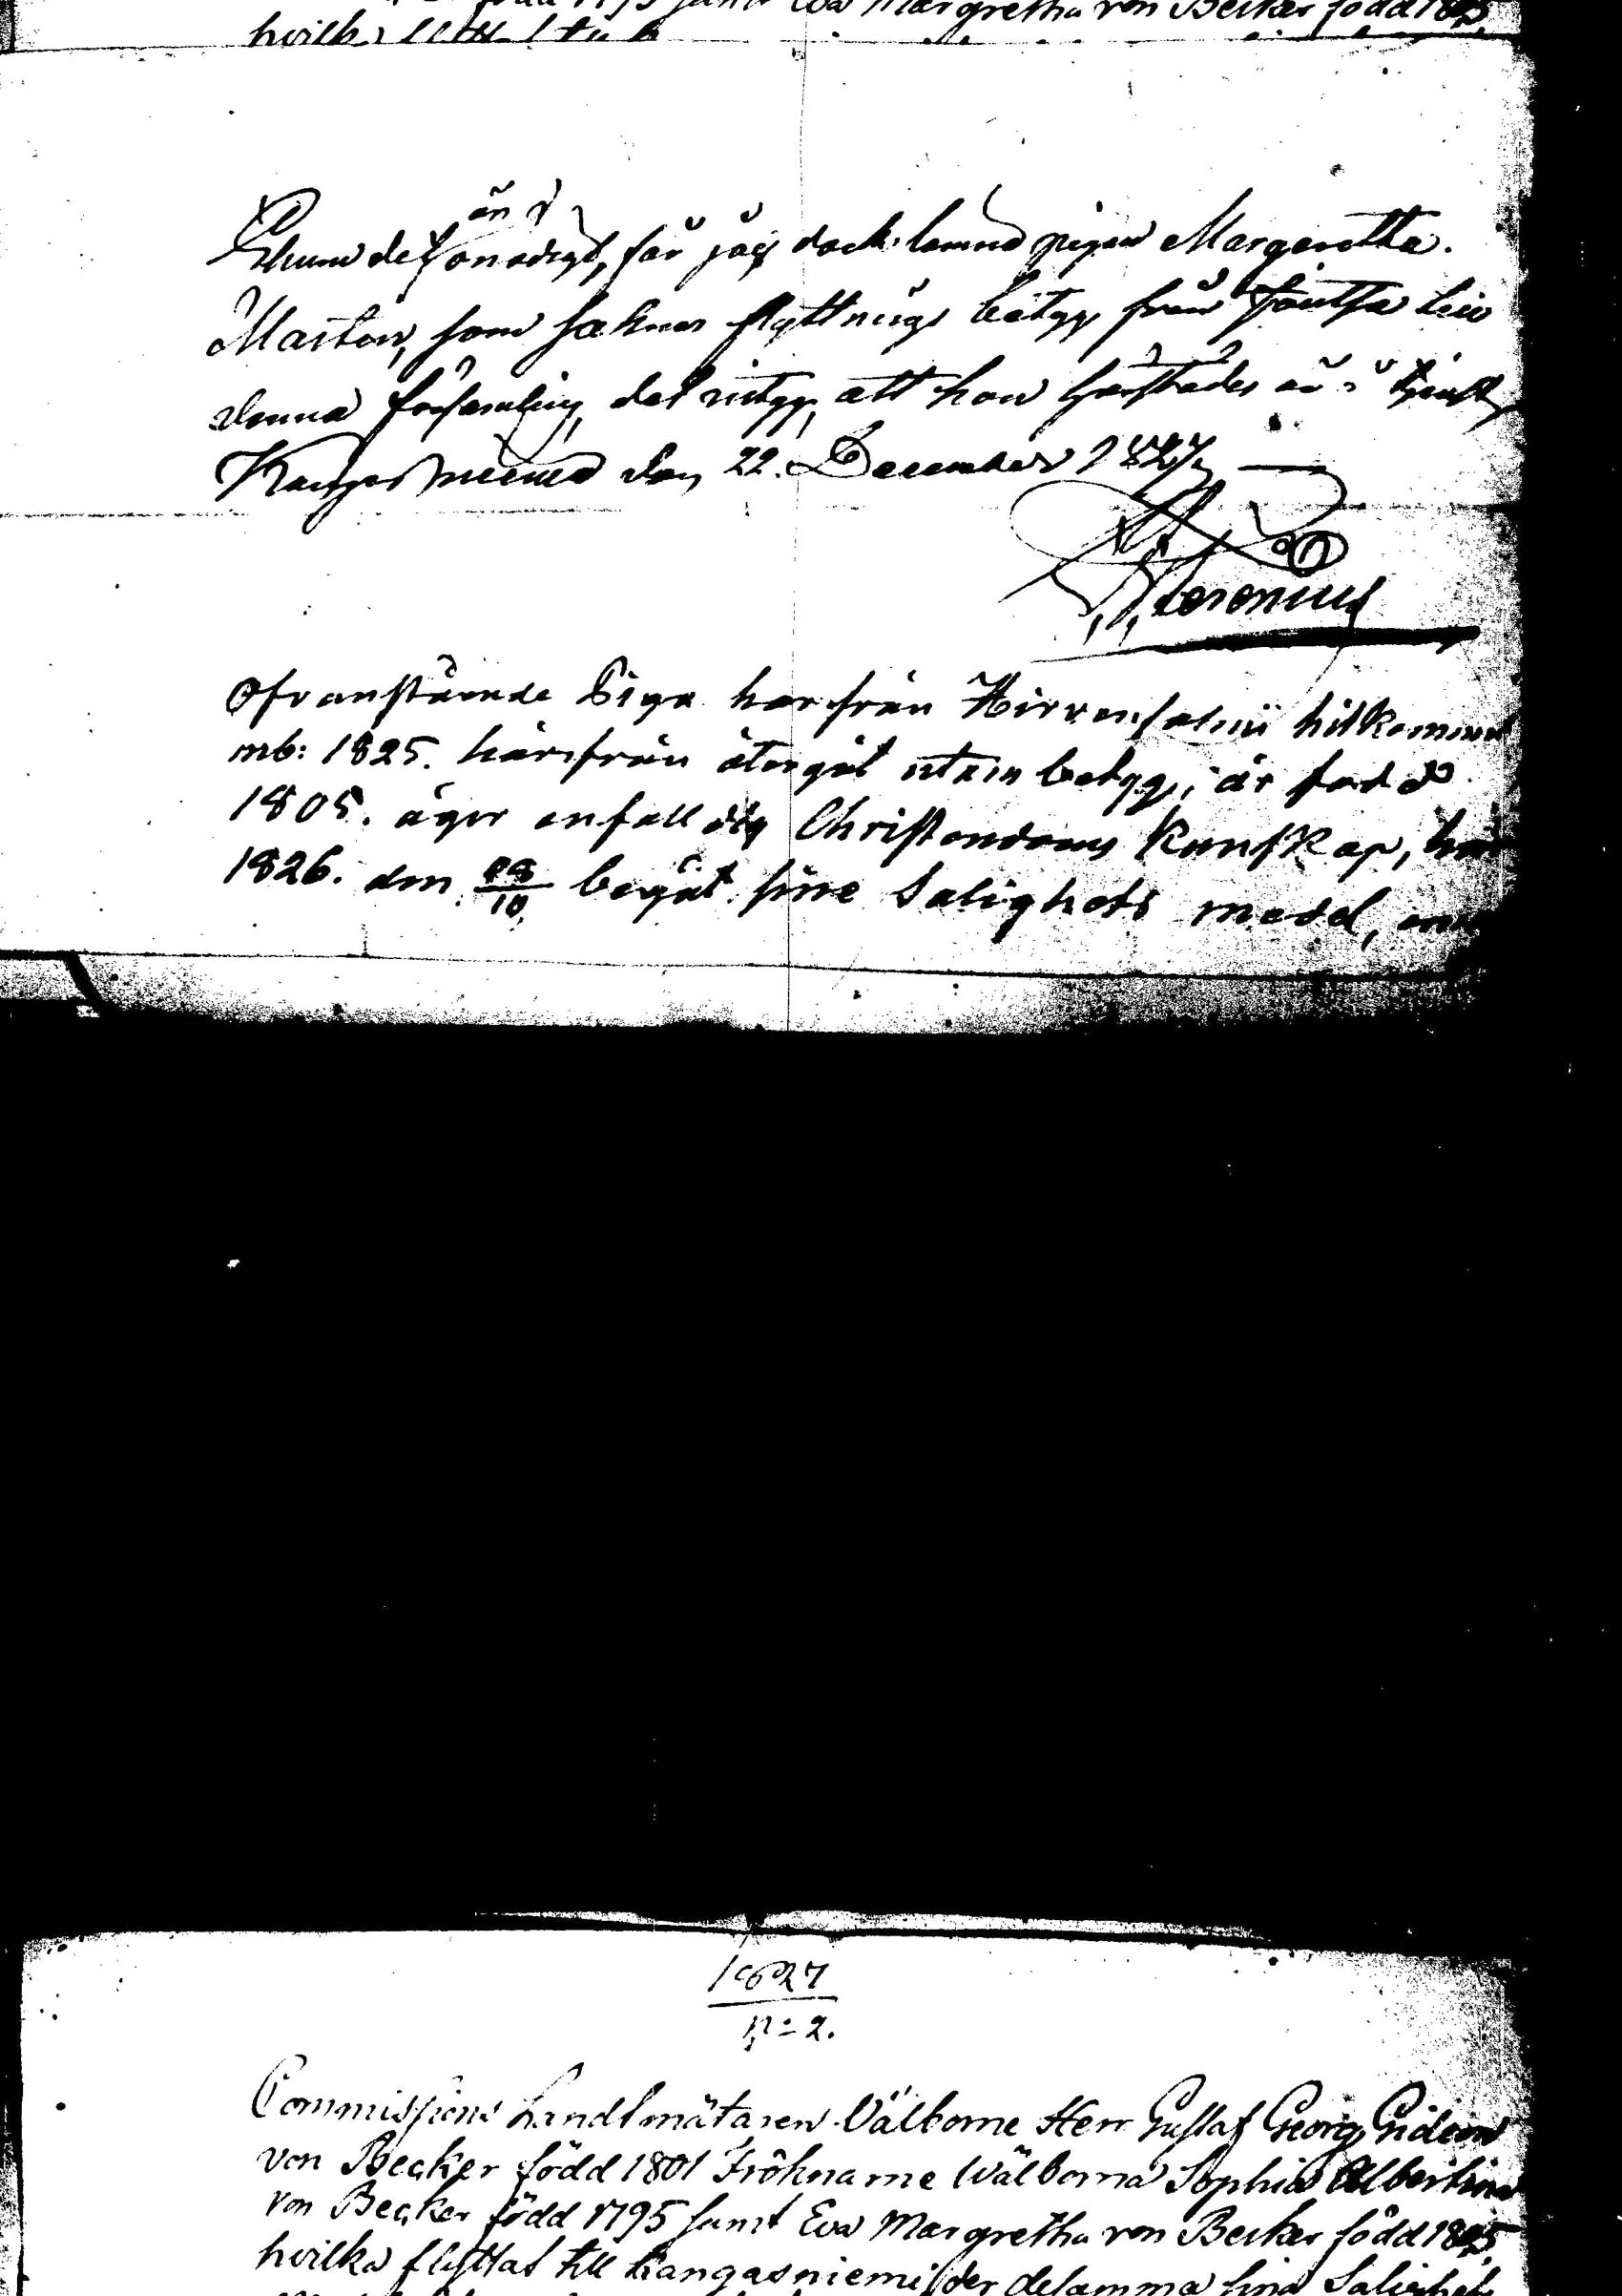 född 1795 samt Eva Margretha von Becker född 1805
hvilka
Ehuru det än är onödigt, får jag dock lemna pigan Margeretha
Marton, som saknar flyttnings betyg från Joutsa till
denna församling, det intyg, att hon härstädes är i tjenst,
Kangasniemi den 22. December 1827
Ofvanstående Piga har från Hirvensalmi hitkommit
mb: 1825. härifrån återgåt utan betyg, är född
1805. äger enfalldig Christendoms kunskap, har
1826. den 28/10 begåt sine Salighets medel,
1827
N:2.
Commissions Landtmätaren Välborne Herr Gustaf Georg Gideon
von Becker född 1801 Frökname Wälborna Sophia Albertina
von Becker född 1795 samt Eva Margretha von Becker född 1805
hvilka flyttat till Kangasniemi der desamma sina Salighets